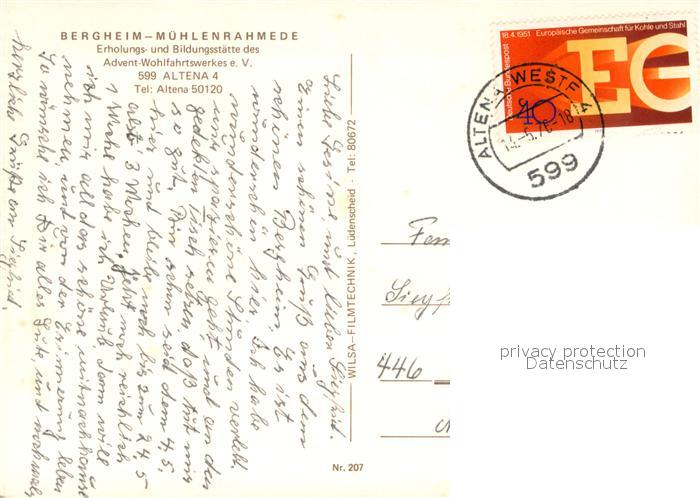 BERGHEIM–MÜHLENRAHMEDE
Erholungs- und Bildungsstätte des
Advent-Wohlfahrtswerkes e. V.
599 ALTENA 4
Tel: Altena 50120
18.4.1951 Europäische Gemeinschaft für Kohle und Stahl
Deutsche Bundespost
EG
40
ALTENA, WESTF
599
Liebe und lieber Siegfried.
Ein schönen Gruß aus dem
schönen Bergheim. Es ist
wunderschön hier. Ich habe
wunderschöne Stunden verlebt.
spazieren geht und an den
gedeckten Tisch setzen, daß tut mir
so gut. Bin schon seit dem 4.5.
hier und bleibe noch bis zum 24.5
also 3 Wochen. Jetzt noch reichlich
1 Woche habe ich Urlaub dann will
ich mir all das schöne mitnachhause
nehmen und von der Erinnerung leben
So wünsche ich Dir alles Gute und nochmals
herzliche Grüße an Siegfried.
WILSA–FILMTECHNIK, Lüdenscheid · Tel: 80672
Nr. 207
Siegf
446
privacy protection
Datenschutz